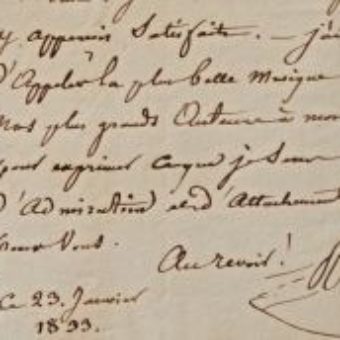 y apperçois Satisfaite. — j'ai
d'Appeler la plus belle Musique
Nos plus grands Auteurs à mon
pour exprimer ce que je Sens
d'Admiration et d'Attachement
pour Vous.
Au revoir!
Ce 23. Janvier
1833.